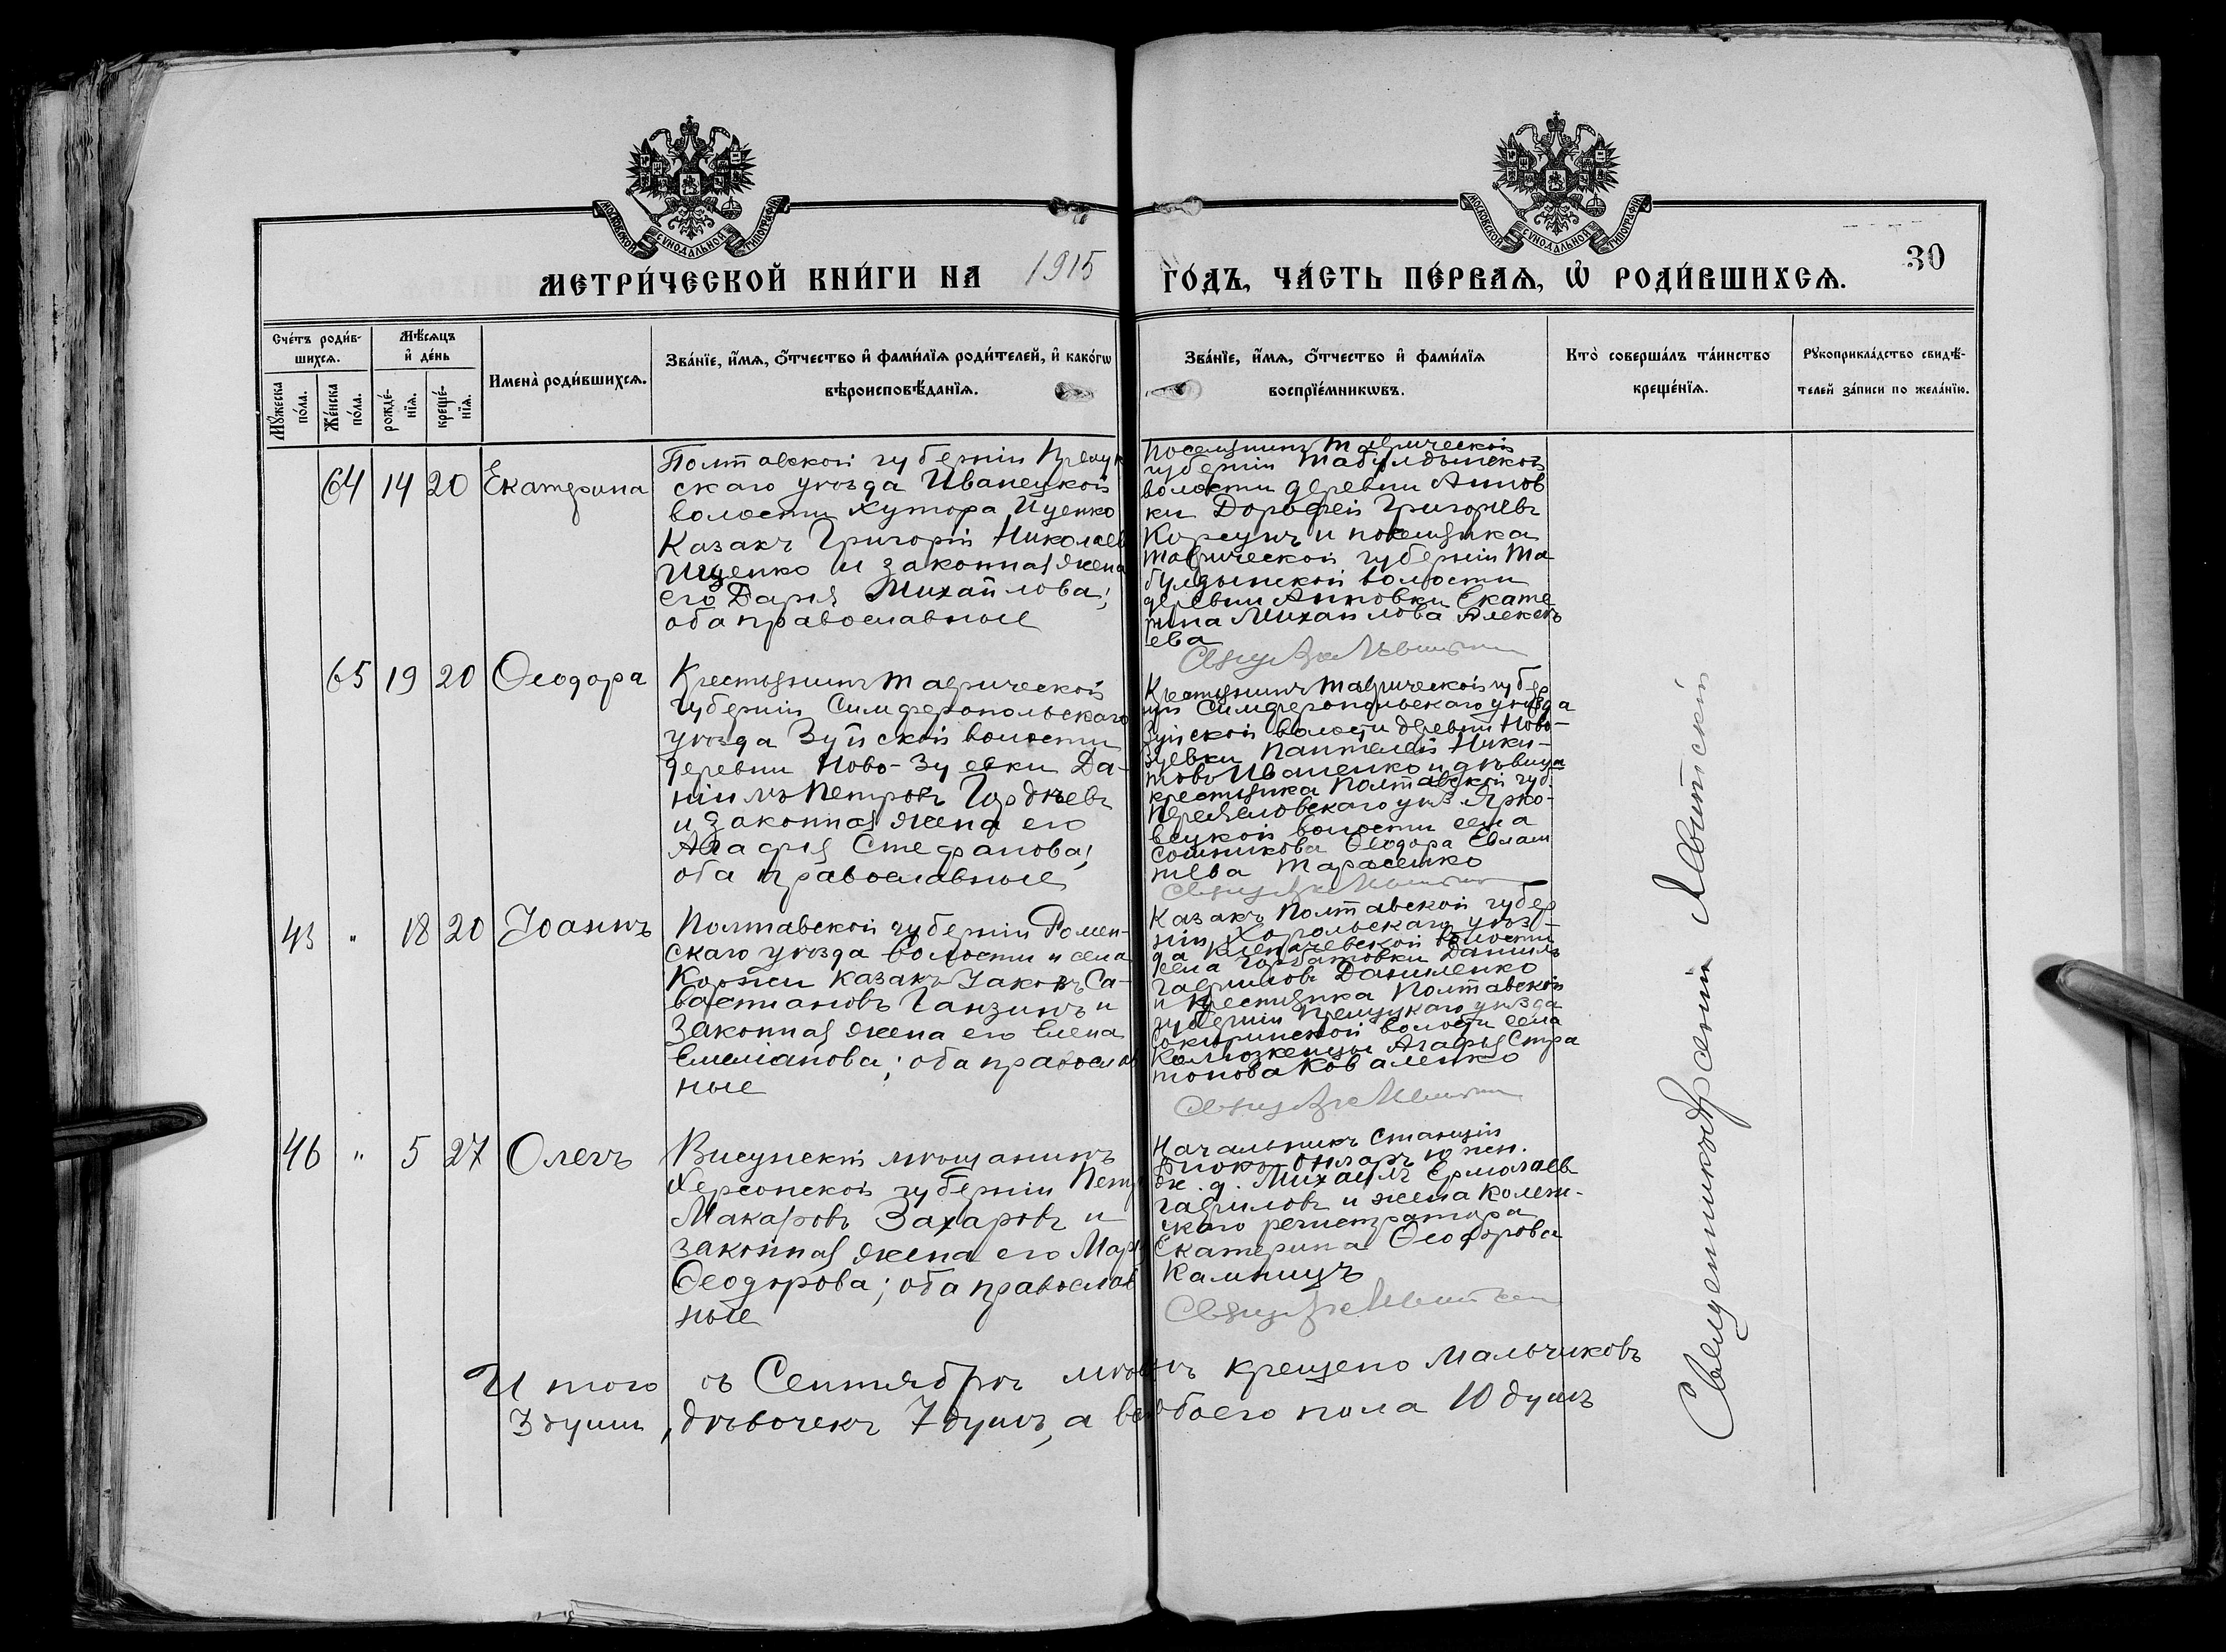 МОСКОВСКОЙ СѴНОДАЛЬНОЙ ТИПОГРАФІИ
МОСКОВСКОЙ СѴНОДАЛЬНОЙ ТИПОГРАФІИ
МЕТРИ́ЧЕСКОЙ КНИ́ГИ НА 1915 ГО́ДЪ, ЧА́СТЬ ПЕ́РВАѦ, Ѽ РОДИ́ВШИХСѦ.
30
Сче́тъ роди́в-
шихсѧ.
Мꙋ́жеска по́ла.
Же́нска по́ла.
Мѣ́сѧцъ
и҆ де́нь
рожде́-
нїѧ.
креще́-
нїѧ.
Имена̀ роди́вшихсѧ.
Зва́нїе, и҆́мѧ, ѻ҆́тчество и҆ фами́лїѧ роди́телей, и҆ како́гѡ
вѣроисповѣ́данїѧ.
Зва́нїе, и҆́мѧ, ѻ҆́тчество и҆ фами́лїѧ
воспрїе́мникѡвъ.
Кто̀ соверша́лъ та́инство
креще́нїѧ.
Рꙋкоприкла́дство свидѣ́-
телей за́писи по жела́нїю.
64 14 20 Екатерина
Полтавской губерніи Кремен
скаго уѣзда Иванецкой
волости хутора Ищенко
Казакъ Григорій Николаев
Ищенко и законная жена
его Дарья Михайлова;
оба православные
Поселянинъ Таврической
губерніи Табулдынской
волости деревни Аннов
ки Дорофей Григорьевъ
Корсунъ и поселянка
Таврической губерніи Та
булдынской волости
деревни Анновки Екате
рина Михайлова Алексѣ
ева
65 19 20 Ѳеодора
Крестьянинъ Таврической
губерніи Симферопольскаго
уѣзда Зуйской волости
деревни Ново-Зуевки Да-
ніилъ Петровъ Гордѣевъ
и законная жена его
Агафія Стефанова;
оба православные
Крестьянинъ Таврической губер
ніи Симферопольскаго уѣзда
Зуйской волости деревни Ново-
Зуевки Пантелей Ники-
товъ Иваненко и дѣвица
крестьянка Полтавской губ.
Переяславскаго уѣз. Ярко-
вецкой волости села
Сошникова Ѳеодора Евлам
піева Тарасенко
43 " 18 20 Іоаннъ
Полтавской губерніи Ромен-
скаго уѣзда волости и села
Коржи казакъ Іаковъ Са-
вастіановъ Ганзинъ и
законная жена его Елена
Емеліанова; оба православ
ные
Казакъ Полтавской губер
ніи Хорольскаго уѣз-
да волости
села Горбатовки Даніилъ
Гавриловъ Даниленко
и крестьянка Полтавской
губерніи уѣзда
волости села
Агафія Стра
тонова Коваленко
46 " 5 27 Олегъ
Висунскій мѣщанинъ
Херсонской губерніи Петр
Макаровъ Захаровъ и
законная жена его Марія
Ѳеодорова; оба православ
ные
Начальникъ станціи
Біюкъ-Онларъ южн.
ж. д. Михаилъ Ермолаев
Гавриловъ и жена Колеж-
скаго регистратора
Екатерина Ѳеодорова
Камницъ
Итого въ Сентябрѣ мѣсяцѣ крещено мальчиковъ
3 души, дѣвочекъ 7 душъ, а всѣ обоего пола 10 душъ
Священникъ Арсеній Левитскій